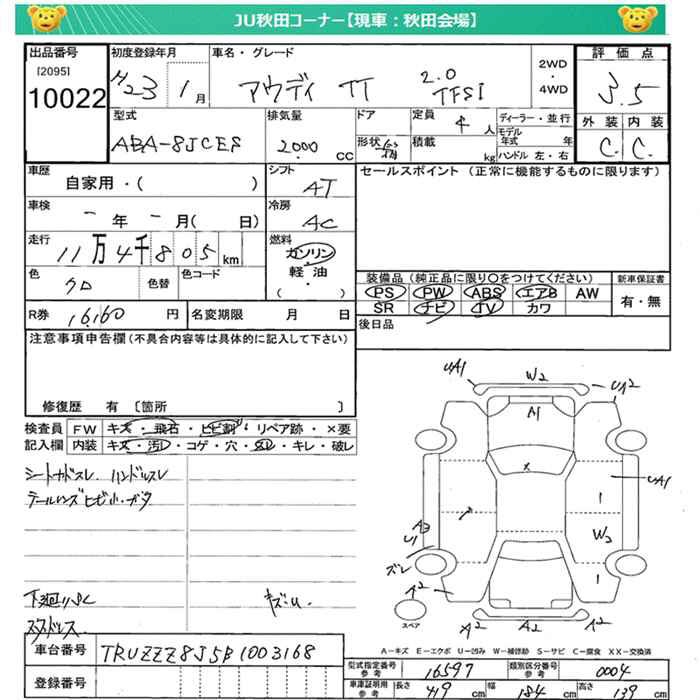 JU秋田コーナー【現車：秋田会場】
出品番号
[2095]
10022
初度登録年月
H23 1月
車名・グレード
アウディ TT 2.0 TFSI
2WD
・
4WD
評価点
3.5
型式
ABA-8JCES
排気量
2000 cc
ドア
形状
定員
4人
積載
kg
ディーラー・並行
モデル年式 年
ハンドル 左・右
外装 内装
C C
車歴
自家用・( )
シフト
AT
セールスポイント (正常に機能するものに限ります)
車検
- 年 - 月( 日)
冷房
AC
走行
11万4千805km
燃料
ガソリン
・
軽油
・
( )
色
クロ
色替
色コード
装備品 (純正品に限り○をつけてください)
PS PW ABS エアB AW
SR ナビ TV カワ
新車保証書
有・無
R券
16,160円
名変期限 月 日
後日品
注意事項申告欄(不具合内容等は具体的に記入して下さい)
修復歴 有 〔箇所 〕
検査員記入欄
FW キズ・飛石・ヒビ割・リペア跡・×要
内装 キズ・汚レ・コゲ・穴・スレ・キレ・破レ
シートカドスレ ハンドルスレ
テールレンズヒビ小・ガタ
下廻りサビ
キズ・U.
スタッドレス
UA1
W2
UA2
A1
UA1
W2
A3
U1
ズレ
A2
A2
A2
A2
スペア
A-キズ E-エクボ U-凹み W-補修跡 S-サビ C-腐食 XX-交換済
車台番号
TRUZZZ8J5B1003168
登録番号
型式指定番号
参考
16597
類別区分番号
参考
0004
車庫証明用
参考
長さ 419 cm
幅 184 cm
高さ 139 cm